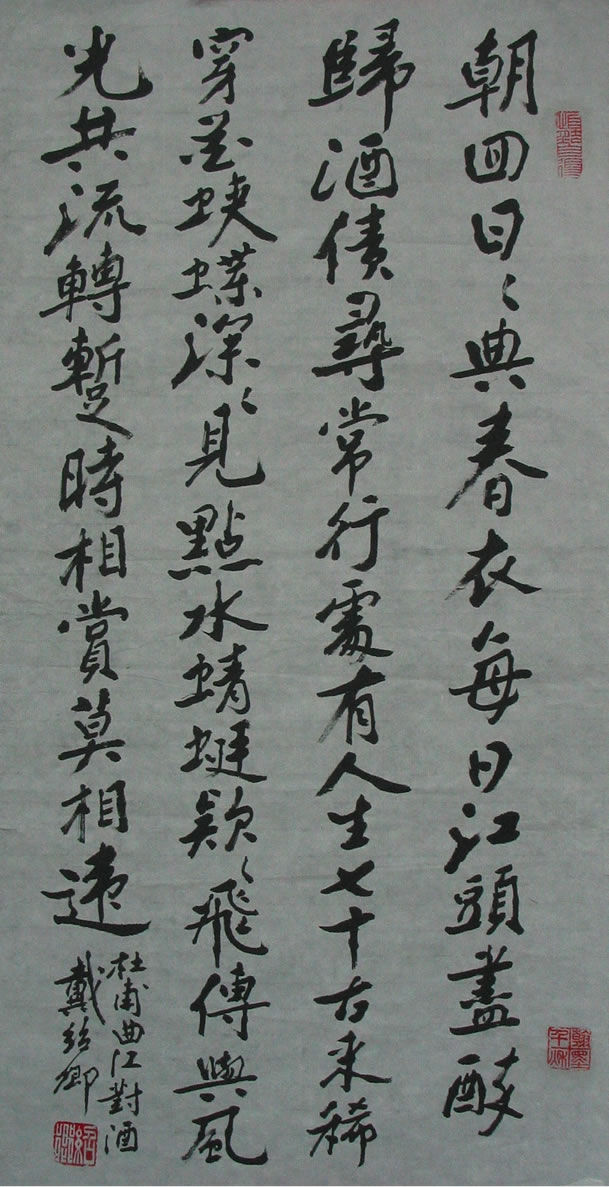 朝囬日〻典春衣每日江頭盡醉
歸酒債尋常行處有人生七十古来稀
穿花蛺蝶深〻見點水蜻蜓款〻飛傳與風
光共流轉蹔時相賞莫相違
杜甫曲江對酒
戴紹卿